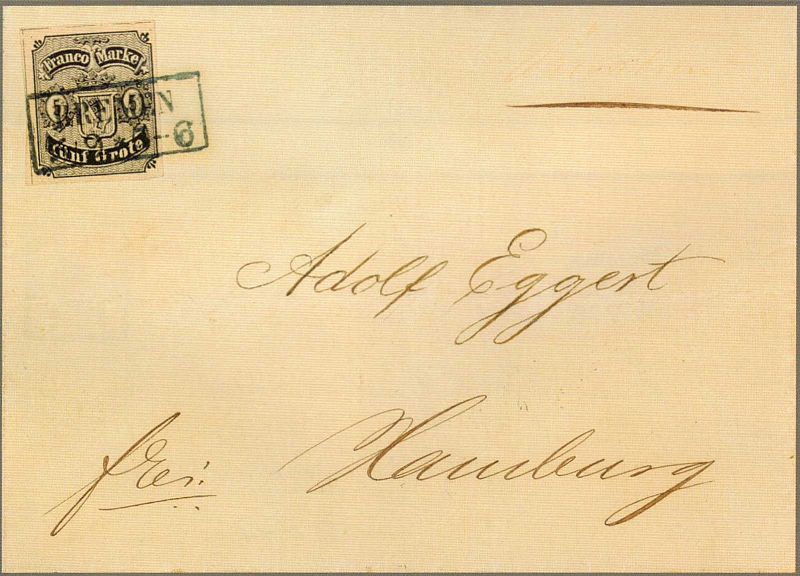 Franco Marke
5 5
Fünf Grote
BREMEN
6
Adolf Eggert
frei: Hamburg